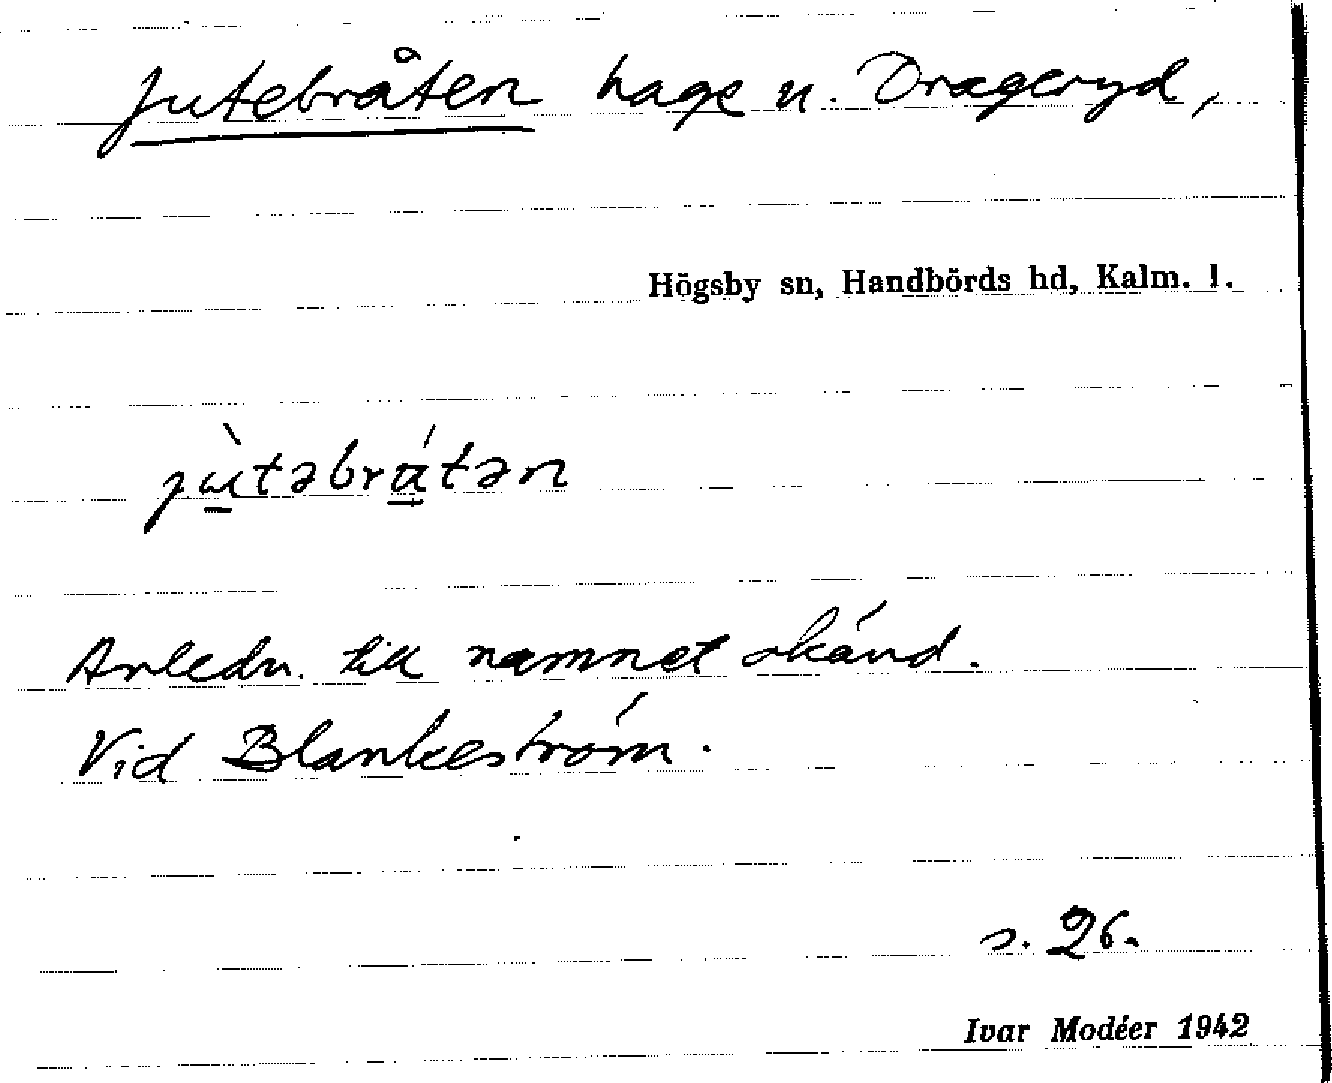 Jutebråten hage u. Drageryd,
Högsby sn, Handbörds hd, Kalm. l.
jù̠təbrá̠tən
Anledn. till namnet okänd.
Vid Blankeström.
s. 26.
Ivar Modéer 1942